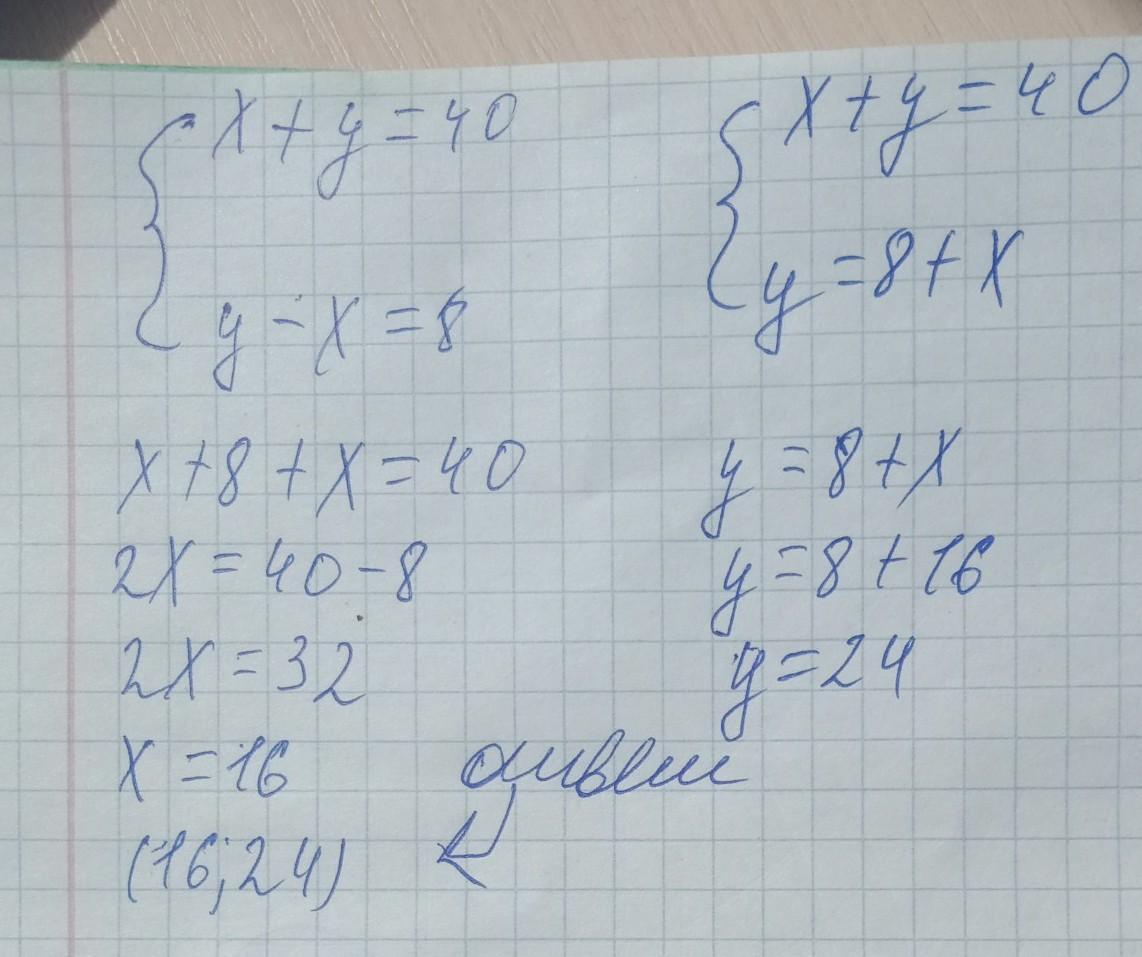 x + y = 40
y - x = 8
x + y = 40
y = 8 + x
x + 8 + x = 40
2x = 40 - 8
2x = 32
x = 16
(16; 24)
y = 8 + x
y = 8 + 16
y = 24
ответ